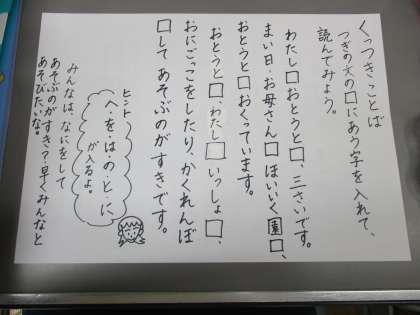 くっつきことば
つぎの文の□にあう字を入れて、
読んでみよう。
わたし□おとうと□、三さいです。
まい日・お母さん□ほいいく園□、
おとうと□おくっています。
おとうと□、わたし□いっしょ□、
おにごっこをしたり、かくれんぼ
□してあそぶのがすきです。
ヒント
へ・を・は・の・と・に
が入るよ。
みんなは、なにをして
あそぶのがすき？早くみんなと
あそびたいな。